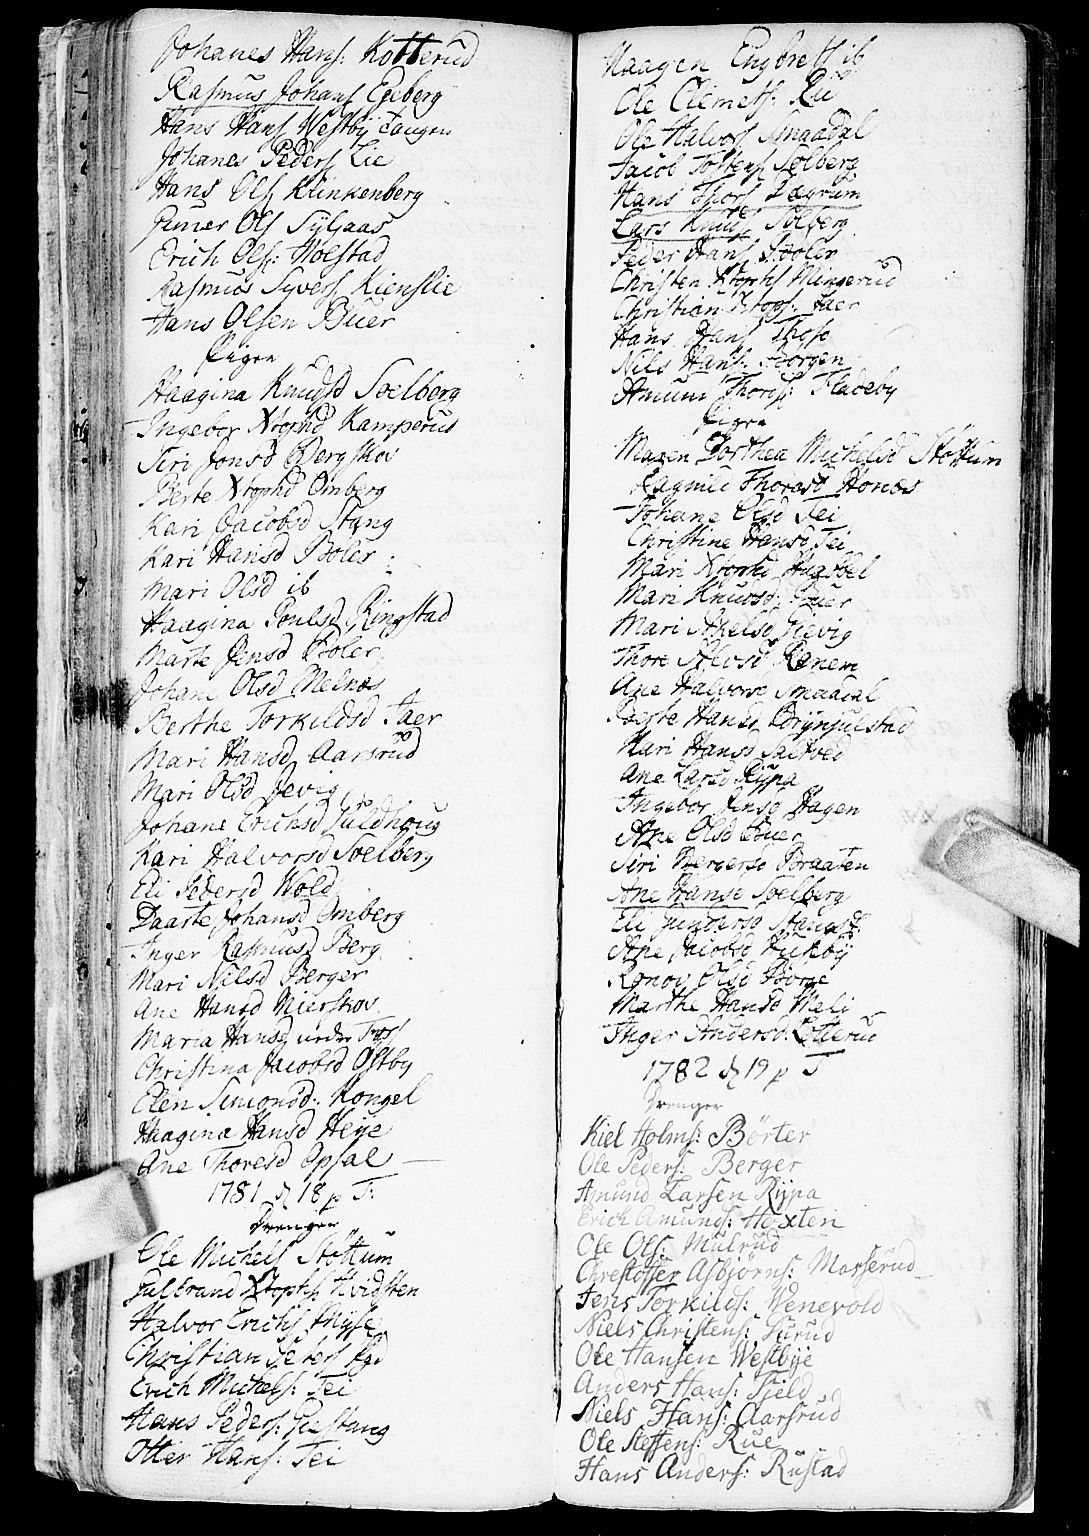 Johanes Hans: Kotterud
Rasmus Johans Egeberg
Hans Hans Westby Tangen
Johanes Peders Lie
Hans Ols Klinkenberg
Ols Syljaas
Erich Ols: Wolstad
Rasmus Syvers Kienslie
Hans Olsen Buer
Piger
Haagina Knudsd Soelberg
Ingebor Xtophd Kamperud
Siri Jonsd Bergskov
Berte Xtophd Omberg
Kari Jacobsd Stang
Kari Hansd Boler
Mari Olsd ib
Haagina Poulsd Ringstad
Marte Jensd Boler
Johane Olsd Melnæs
Berthe Torkildsd Faer
Mari Hansd Aarsrud
Mari Olsd Jevig
Johane Erichsd Guldhoug
Kari Halvorsd Soelberg
Eli Pedersd Wold
Daarte Johansd Omberg
Inger Rasmusd Berg
Mari Nilsd Berger
Ane Hansd Mierskov
Maria Hansd under Fos
Christina Jacobsd Østby
Elen Simonsd: Kongel
Haagina Hansd Heije
Ane Thoresd Opsal
1781 d 18 p T:
Drenger
Ole Michels Støttum
Gulbrand Xtophs: Hvidsten
Halvor Erichs Mÿse
Christian Peters
Erich Michels: Tei
Hans Peders: Giestang
Otter Hans: Tei
Haagen Engbrets ib
Ole Clemets: Ru
Ole Halvors Smaadal
Jacob Tostens Solberg
Hans Thors Lægrum
Lars Knuds Solberg
Peder Hans Booler
Christen Xtophs Mingerud
Christian Xtops: Faer
Hans Hans Those
Nils Hans: Borgen
Amun Thors: Fladeby
Piger
Maren Dorthea Michelsd Støttum
Ragnil Thoresd Honæs
Johane Olsd Tei
Christine Hansd Tei
Mari Xtophd
Mari Knudsd: Buer
Mari Axelsd Jevig
Thore Alvsd Ranem
Ane Halvorsd Smaadal
Hansd Brynjulstad
Mari Hansd Saltved
Ane Larsd Rypa
Ingebor Jensd Hagen
Ane Olsd Buer
Siri Bergersd Braaten
Ane Hansd Soelberg
Eli Gundersd
Ane Jacobsd
Ronov Olsd
Marthe Hansd Meli
Inger Andersd: Lotterud
1782 d 19 p T
Drenger
Kiel Holms: Börter
Ole Peders: Berger
Amund Larsen Rypa
Erich Amunds: Hoxten
Ole Ols: Mulrud
Chrestoffer Asbjørns: Masserud
Jens Torkilds: Wenevold
Niels Christens: Furud
Ole Hansen Westbÿe
Anders Hans: Fjeld
Niels Hans: Aarsrud
Ole Steffens: Rue
Hans Anders: Rustad